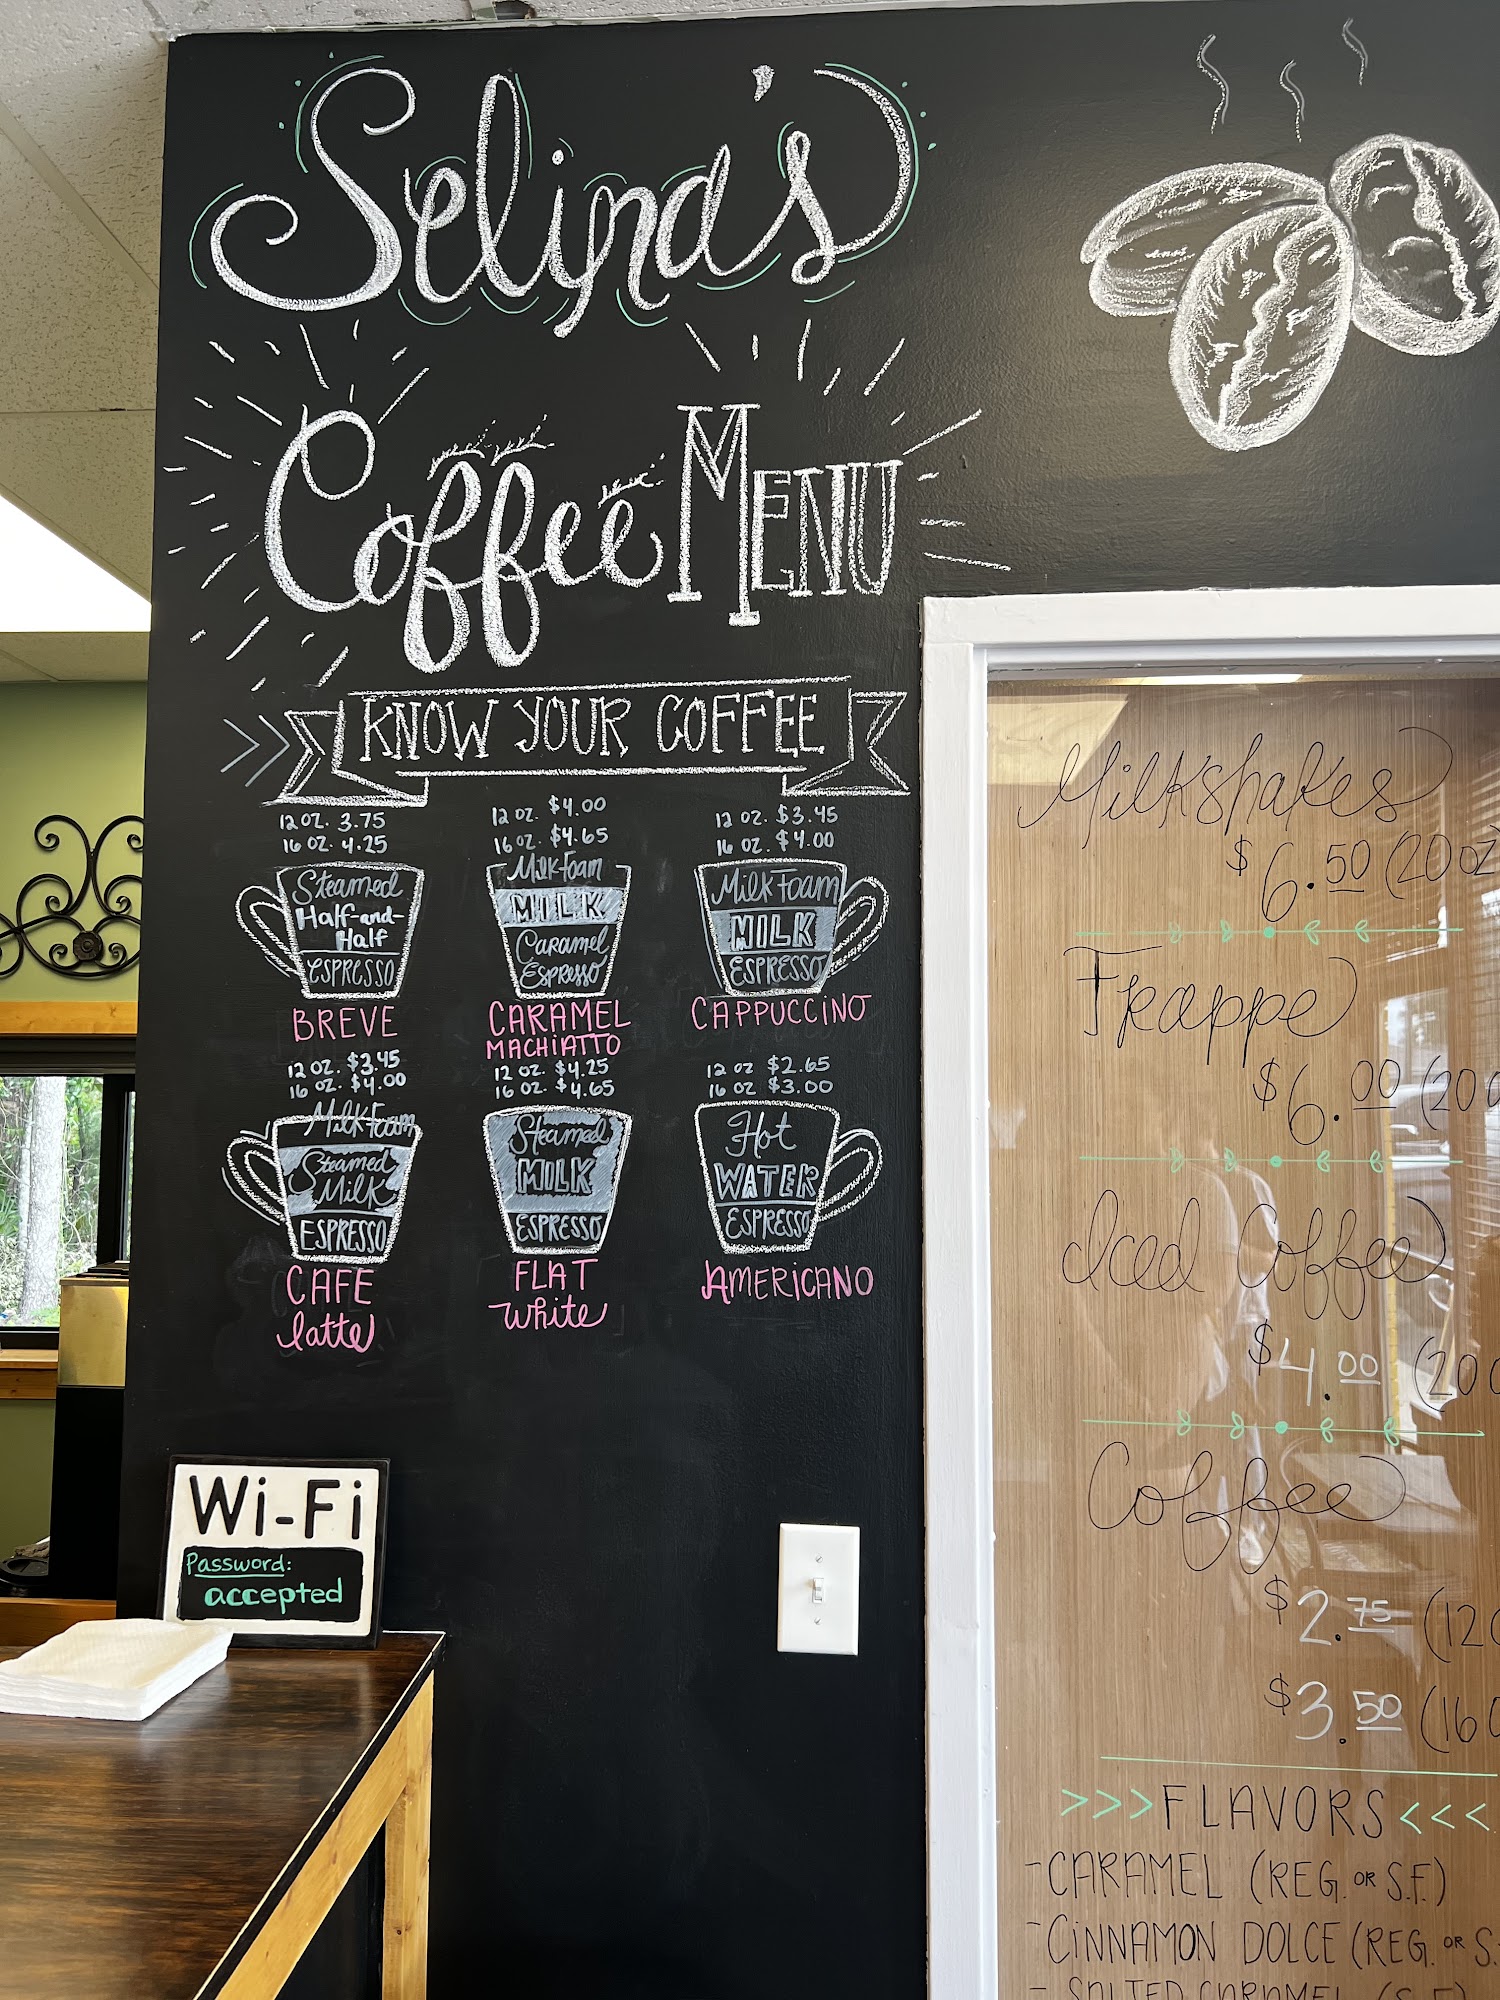 Selina's
Coffee MENU
KNOW YOUR COFFEE
12 OZ. 3.75
16 OZ. 4.25
Steamed
Half-and-
Half
ESPRESSO
BREVE
12 OZ. $4.00
16 OZ. $4.65
Milk Foam
MILK
Caramel
Espresso
CARAMEL
MACHIATTO
12 OZ. $3.45
16 OZ. $4.00
Milk Foam
MILK
ESPRESSO
CAPPUCCINO
12 OZ. $3.45
16 OZ. $4.00
Milk Foam
Steamed
Milk
ESPRESSO
CAFE
latte
12 OZ. $4.25
16 OZ. $4.65
Steamed
MILK
ESPRESSO
FLAT
white
12 OZ $2.65
16 OZ $3.00
Hot
WATER
ESPRESSO
AMERICANO
Wi-Fi
Password:
accepted
Milkshakes
$6.50 (20oz
Frappe
$6.00 (20o
Iced Coffee
$4.00 (20o
Coffee
$2.75 (12o
$3.50 (16o
>>> FLAVORS <<<
-CARAMEL (REG. OR S.F.)
-CINNAMON DOLCE (REG. OR S.
- SALTED CARAMEL (S.F.)